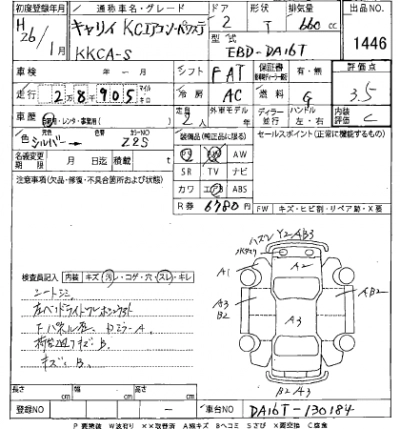 初度登録年月 通称車名・グレード ドア 形状 排気量 出品NO
H26/1月 キャリイ KCエアコン・パワステ 2 T 660cc 1446
KKCA-S 型式 EBD-DA16T
車検 年 月 シフト FAT 保証書 有・無 評価点
走行 28,905 マイル キロ 冷房 AC 燃料 G 3.5
車歴 自家用・レンタ・事業用 定員 2人 外車モデル 年 ディーラー 並行 ハンドル 左・右 内装評価 C
色 シルバー カラーNO Z2S 装備品(純正品に限る) セールスポイント(正常に機能するもの)
名義変更期限 月 日迄 積載 t AW
注意事項(欠品・修復・不具合箇所および状態) SR TV ナビ
カワ エアB ABS
R券 6780円 FW キズ・ヒビ割・リペア跡・X要
Y2 AB3
A1 A2
A3 B2 A3 AB2
検査員記入 内装 キズ・汚レ・コゲ・穴・スレ・キレ
シートシミ
荷台廻りキズB.
キズB.
B2 A3
長さ cm 幅 cm 高さ cm
登録NO ー 車台NO DA16T-130184
P要塗装 W波有り XX取替済 A線キズ Bヘコミ Sさび X要交換 C腐食